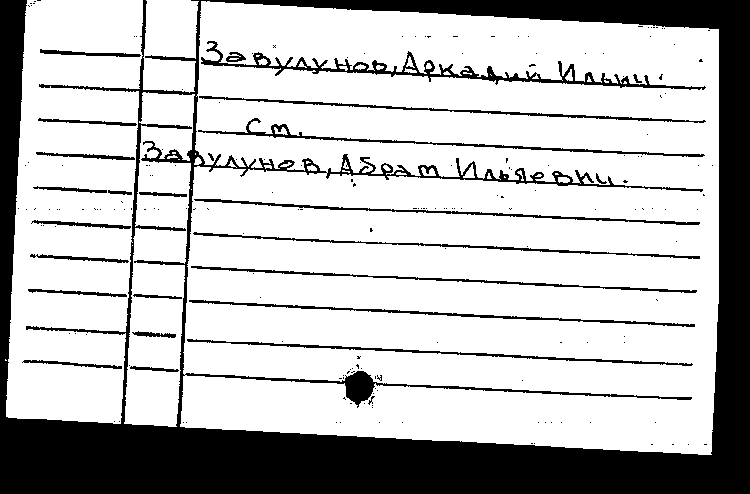 Завулунов, Аркадий Ильич.
см.
Завулунов, Абрам Ильяевич.